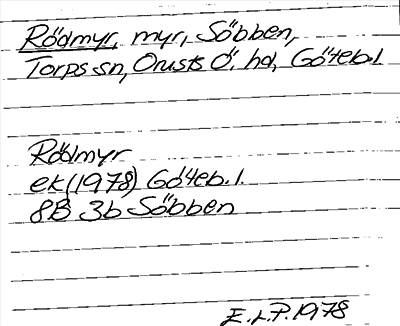 Rödmyr, myr, Söbben,
Torps sn, Orusts Ö. hd, Göteb. l
Rödmyr
ek (1978) Göteb. l.
8B 3b Söbben
E.L.P. 1978